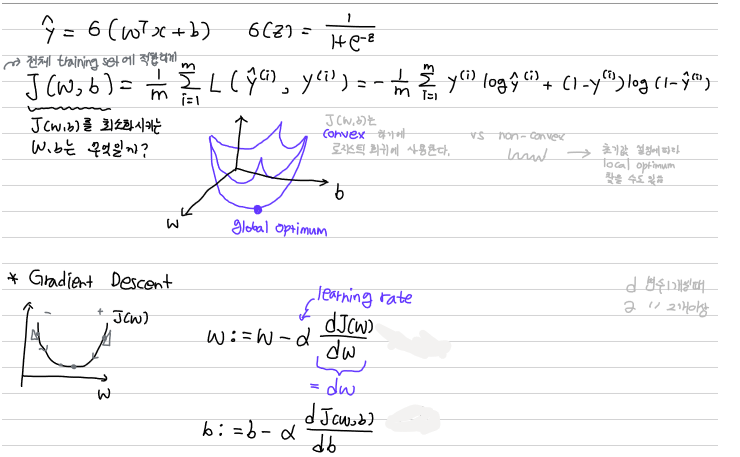 ŷ = σ(wᵀx + b)    σ(z) = 1/(1+e^-z)
→ 전체 training set에 적합하게
J(w, b) = 1/m Σ_{i=1}^{m} L(ŷ^(i), y^(i)) = - 1/m Σ_{i=1}^{m} y^(i) log ŷ^(i) + (1-y^(i)) log(1-ŷ^(i))
J(w,b)를 최소화시키는
w, b는 무엇일까?
J(w,b)는
convex 하기에
로지스틱 회귀에 사용한다.
vs non-convex
→ 초기값 설정에 따라
local optimum
찾을 수도 있음
b
w
global optimum
* Gradient Descent
learning rate
d 변수 1개일때
∂ 〃 2개이상
- +
J(w)
w
w := w - α dJ(w)/dw
= dw
b := b - α dJ(w,b)/db